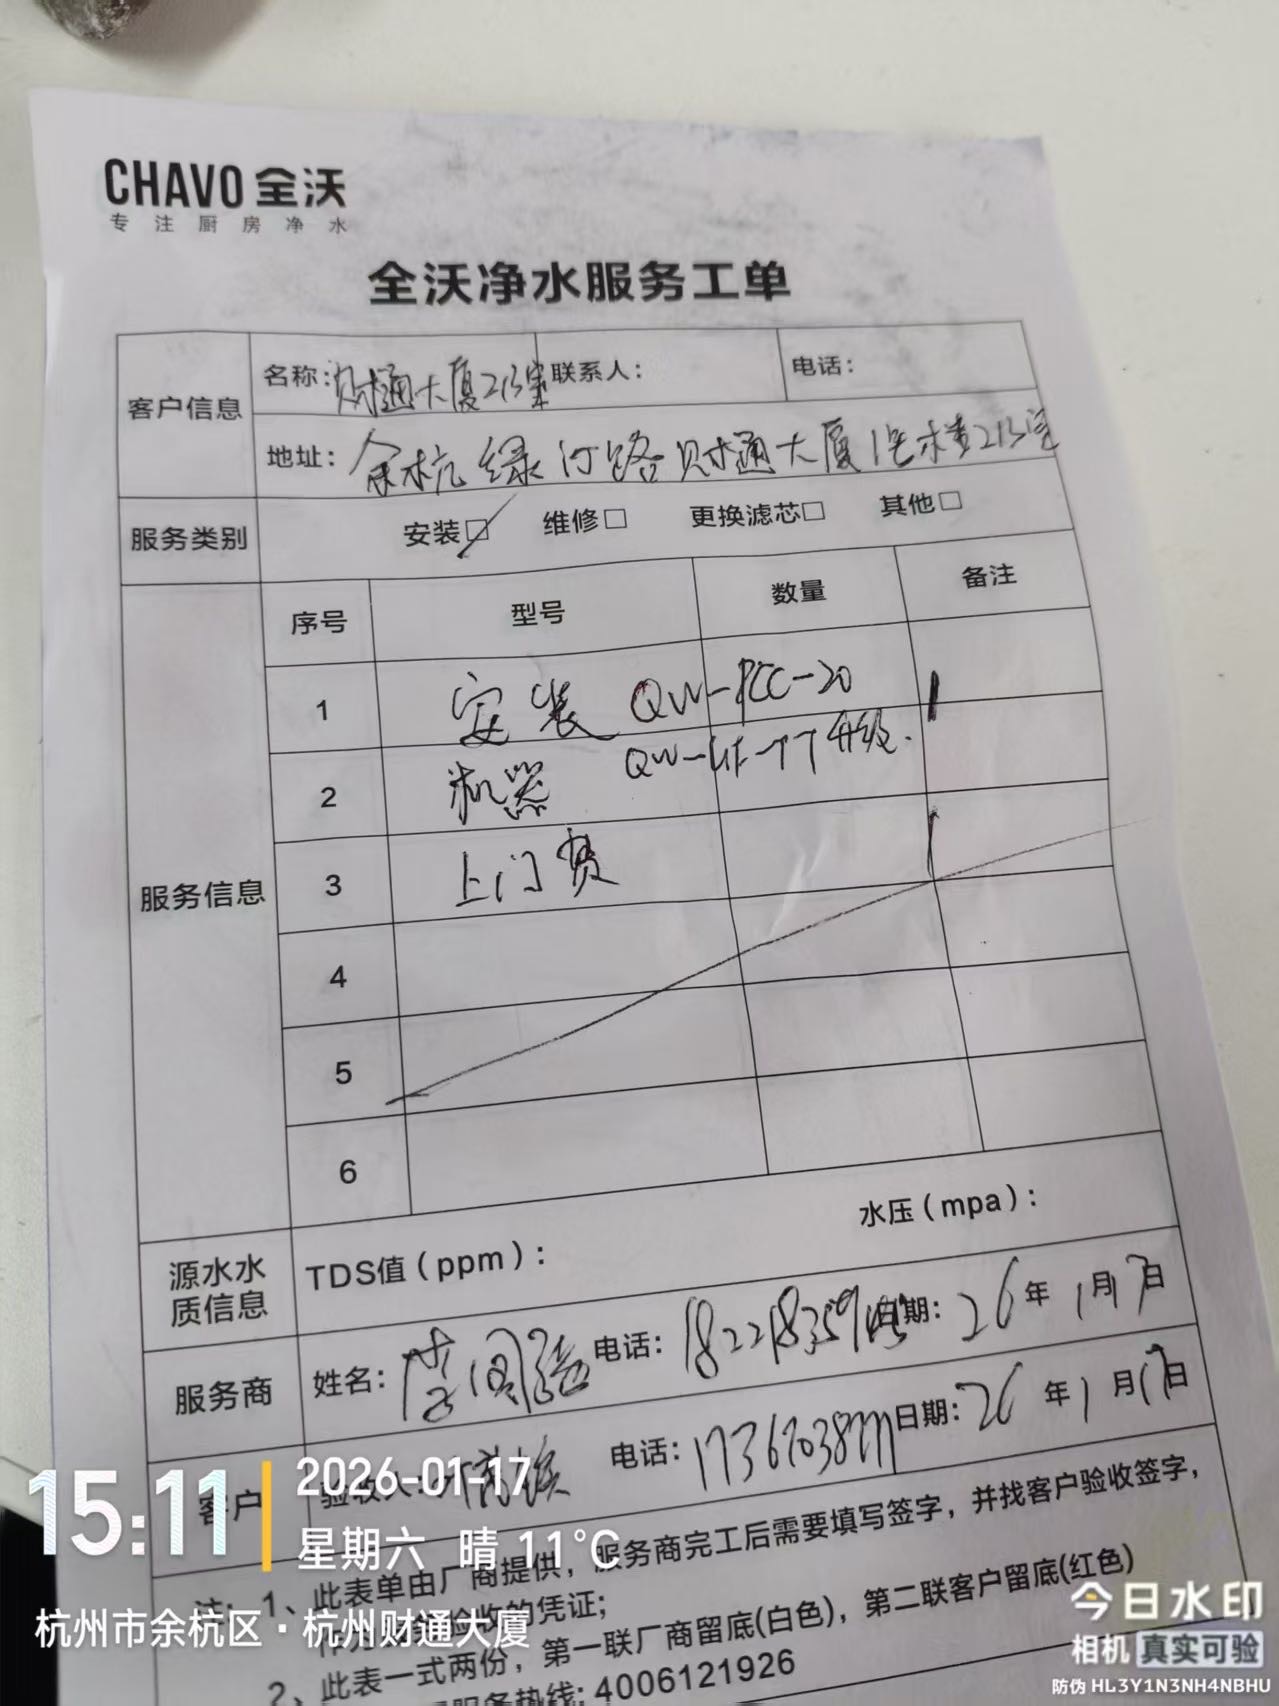 CHAVO 全沃
专注厨房净水
全沃净水服务工单
客户信息 名称：财通大厦213室 联系人： 电话：
地址：余杭绿汀路财通大厦1号楼213室
服务类别 安装☑ 维修□ 更换滤芯□ 其他□
服务信息 序号 型号 数量 备注
1 安装 QW-RCC-20 1
2 机器 QW-UF-TT升级.
3 上门费 1
4
5
6
源水水质信息 TDS值（ppm）： 水压（mpa）：
服务商 姓名：李 电话： 日期：26年1月17日
客户 验收人 电话： 日期：26年1月17日
注：1、此表单由厂商提供，服务商完工后需要填写签字，并找客户验收签字，
验收的凭证；
2、此表一式两份，第一联厂商留底(白色)，第二联客户留底(红色)
服务热线：4006121926
15:11
2026-01-17
星期六 晴 11℃
杭州市余杭区·杭州财通大厦
今日水印
相机 真实可验
防伪 HL3Y1N3NH4NBHU